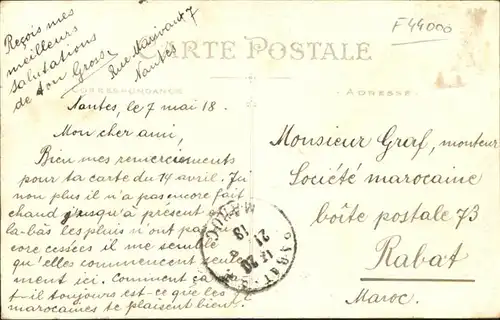 Reçois mes
meilleurs
salutations
de ton Grosse
Rue Marivaux 7
Nantes
F44000
CARTE POSTALE
CORRESPONDANCE
ADRESSE
Nantes, le 7 mai 18.
Mon cher ami,
Bien mes remerciements
pour ta carte du 14 avril. Ici
non plus il n'a pas encore fait
chaud jusqu'à présent et
là-bas les pluis n'ont pas en-
core cessées il me semble
qu'elles commencent seule-
ment ici. Comment ça
t-il toujours est-ce que les
marocaines te plaisent bien?
Monsieur Graf, monteur
Société marocaine
boîte postale 73
Rabat
Maroc.
RABAT
MAROC
21
18